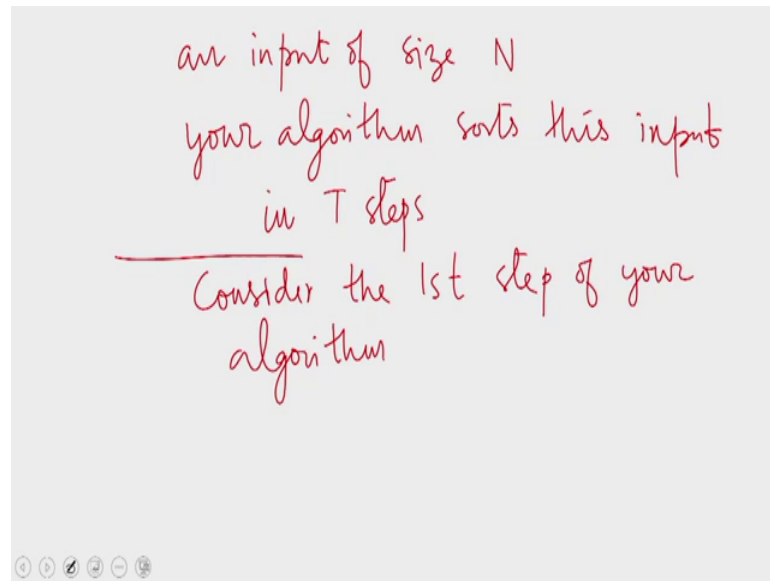 an input of size N
your algorithm sorts this input
in T steps
Consider the 1st step of your
algorithm